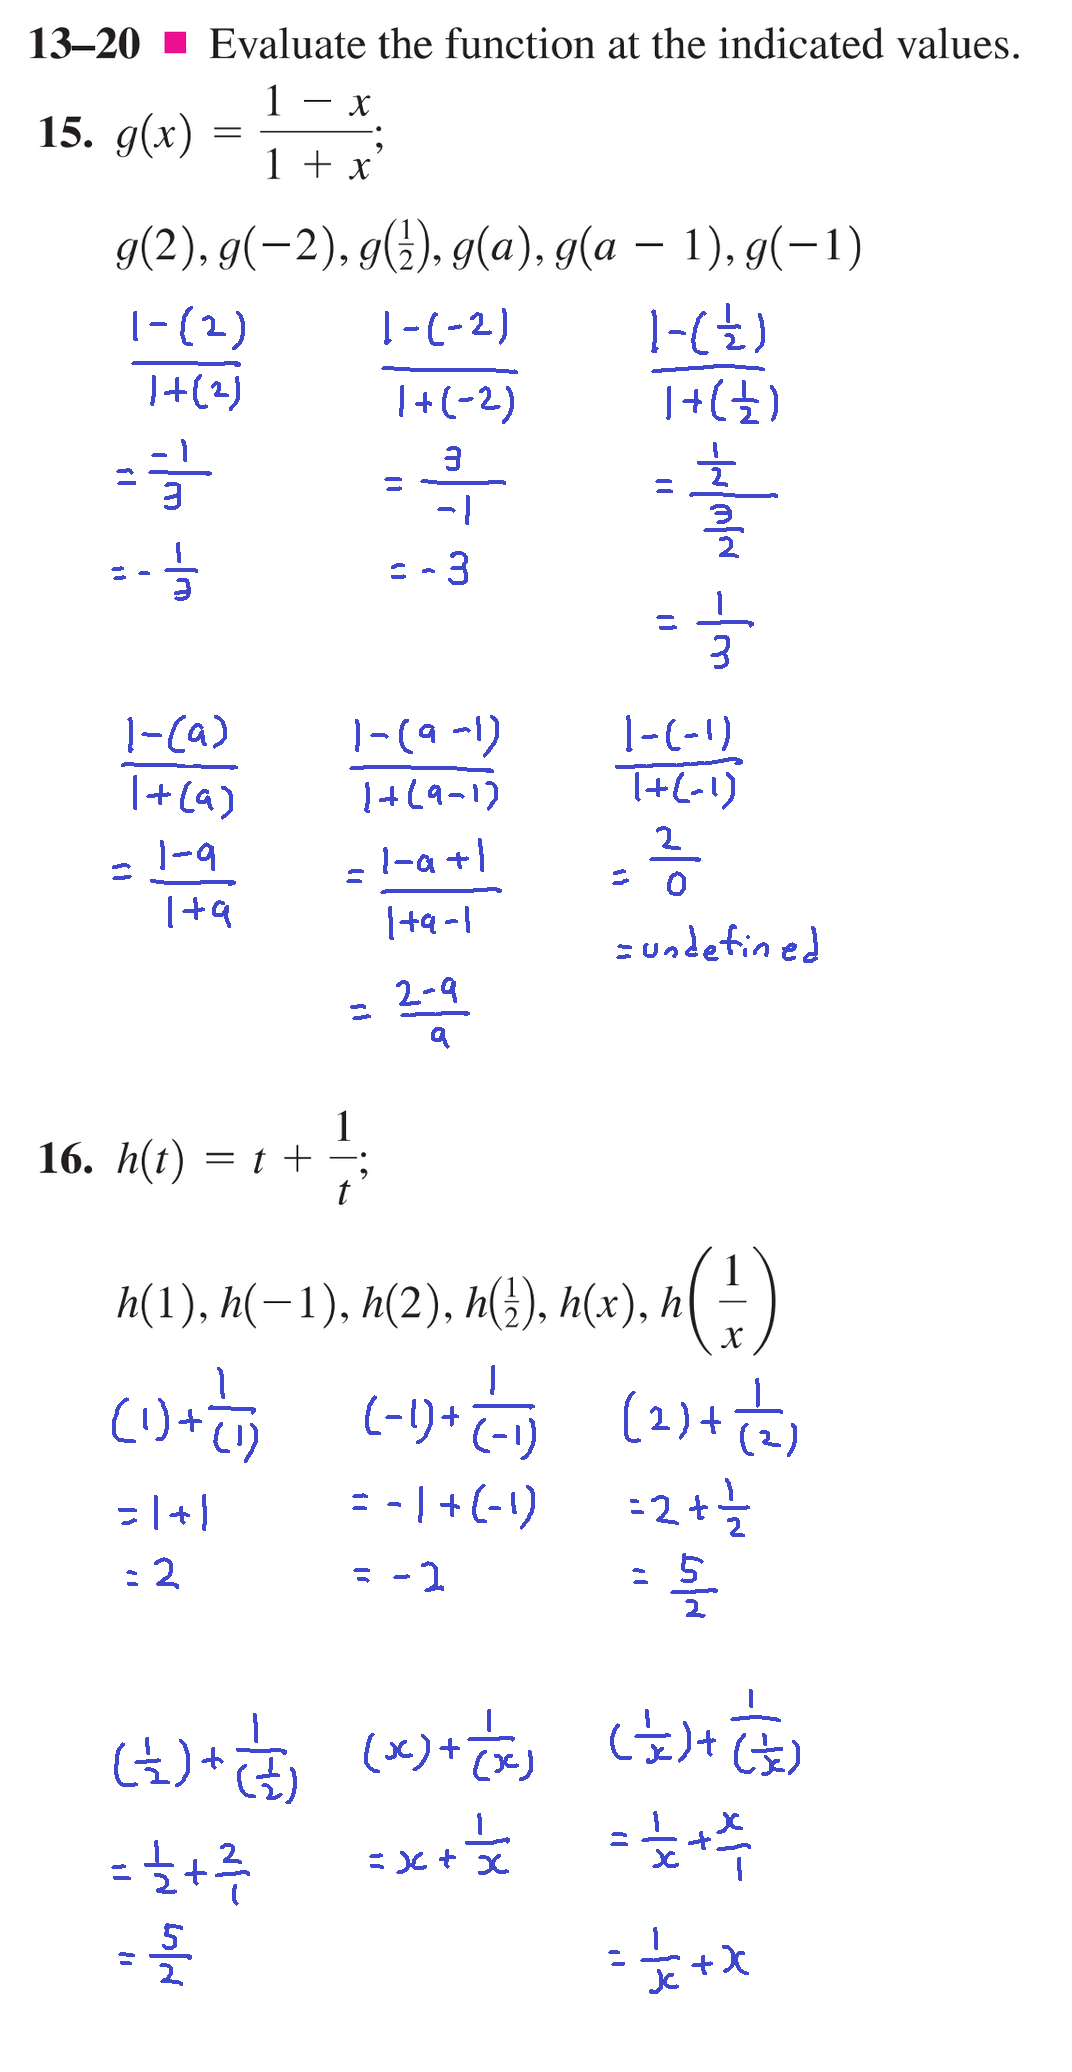 13–20 ■ Evaluate the function at the indicated values.
15. g(x) = (1 − x)/(1 + x);
g(2), g(−2), g(1/2), g(a), g(a − 1), g(−1)
(1-(2))/(1+(2))   (1-(-2))/(1+(-2))   (1-(1/2))/(1+(1/2))
= -1/3   = 3/-1   = (1/2)/(3/2)
= - 1/3   = - 3   = 1/3
(1-(a))/(1+(a))   (1-(a-1))/(1+(a-1))   (1-(-1))/(1+(-1))
= (1-a)/(1+a)   = (1-a+1)/(1+a-1)   = 2/0
= (2-a)/a   = undefined
16. h(t) = t + 1/t;
h(1), h(−1), h(2), h(1/2), h(x), h(1/x)
(1)+1/(1)   (-1)+1/(-1)   (2)+1/(2)
= 1+1   = -1+(-1)   = 2+1/2
= 2   = -2   = 5/2
(1/2)+1/(1/2)   (x)+1/(x)   (1/x)+1/(1/x)
= 1/2+2/1   = x+1/x   = 1/x+x/1
= 5/2   = 1/x+x